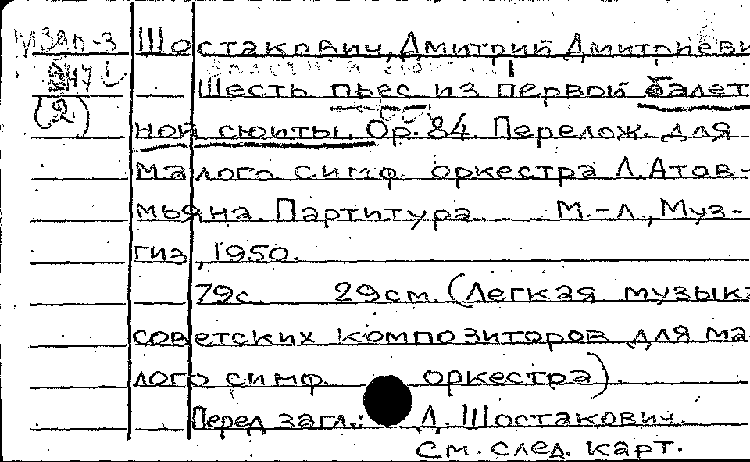 МЗАП-3 Шостакович, Дмитрий Дмитриеви
Шесть пьес из первой балет
(2)
ной сюиты. Ор. 84. Перелож. для
малого симф. оркестра Л. Атов-
мьяна. Партитура. М.-Л., Муз-
гиз, 1950.
79с. 29см. (Легкая музыка
советских композиторов для ма
лого симф. оркестра).
Перед загл.: Д. Шостакович.
См. след. карт.